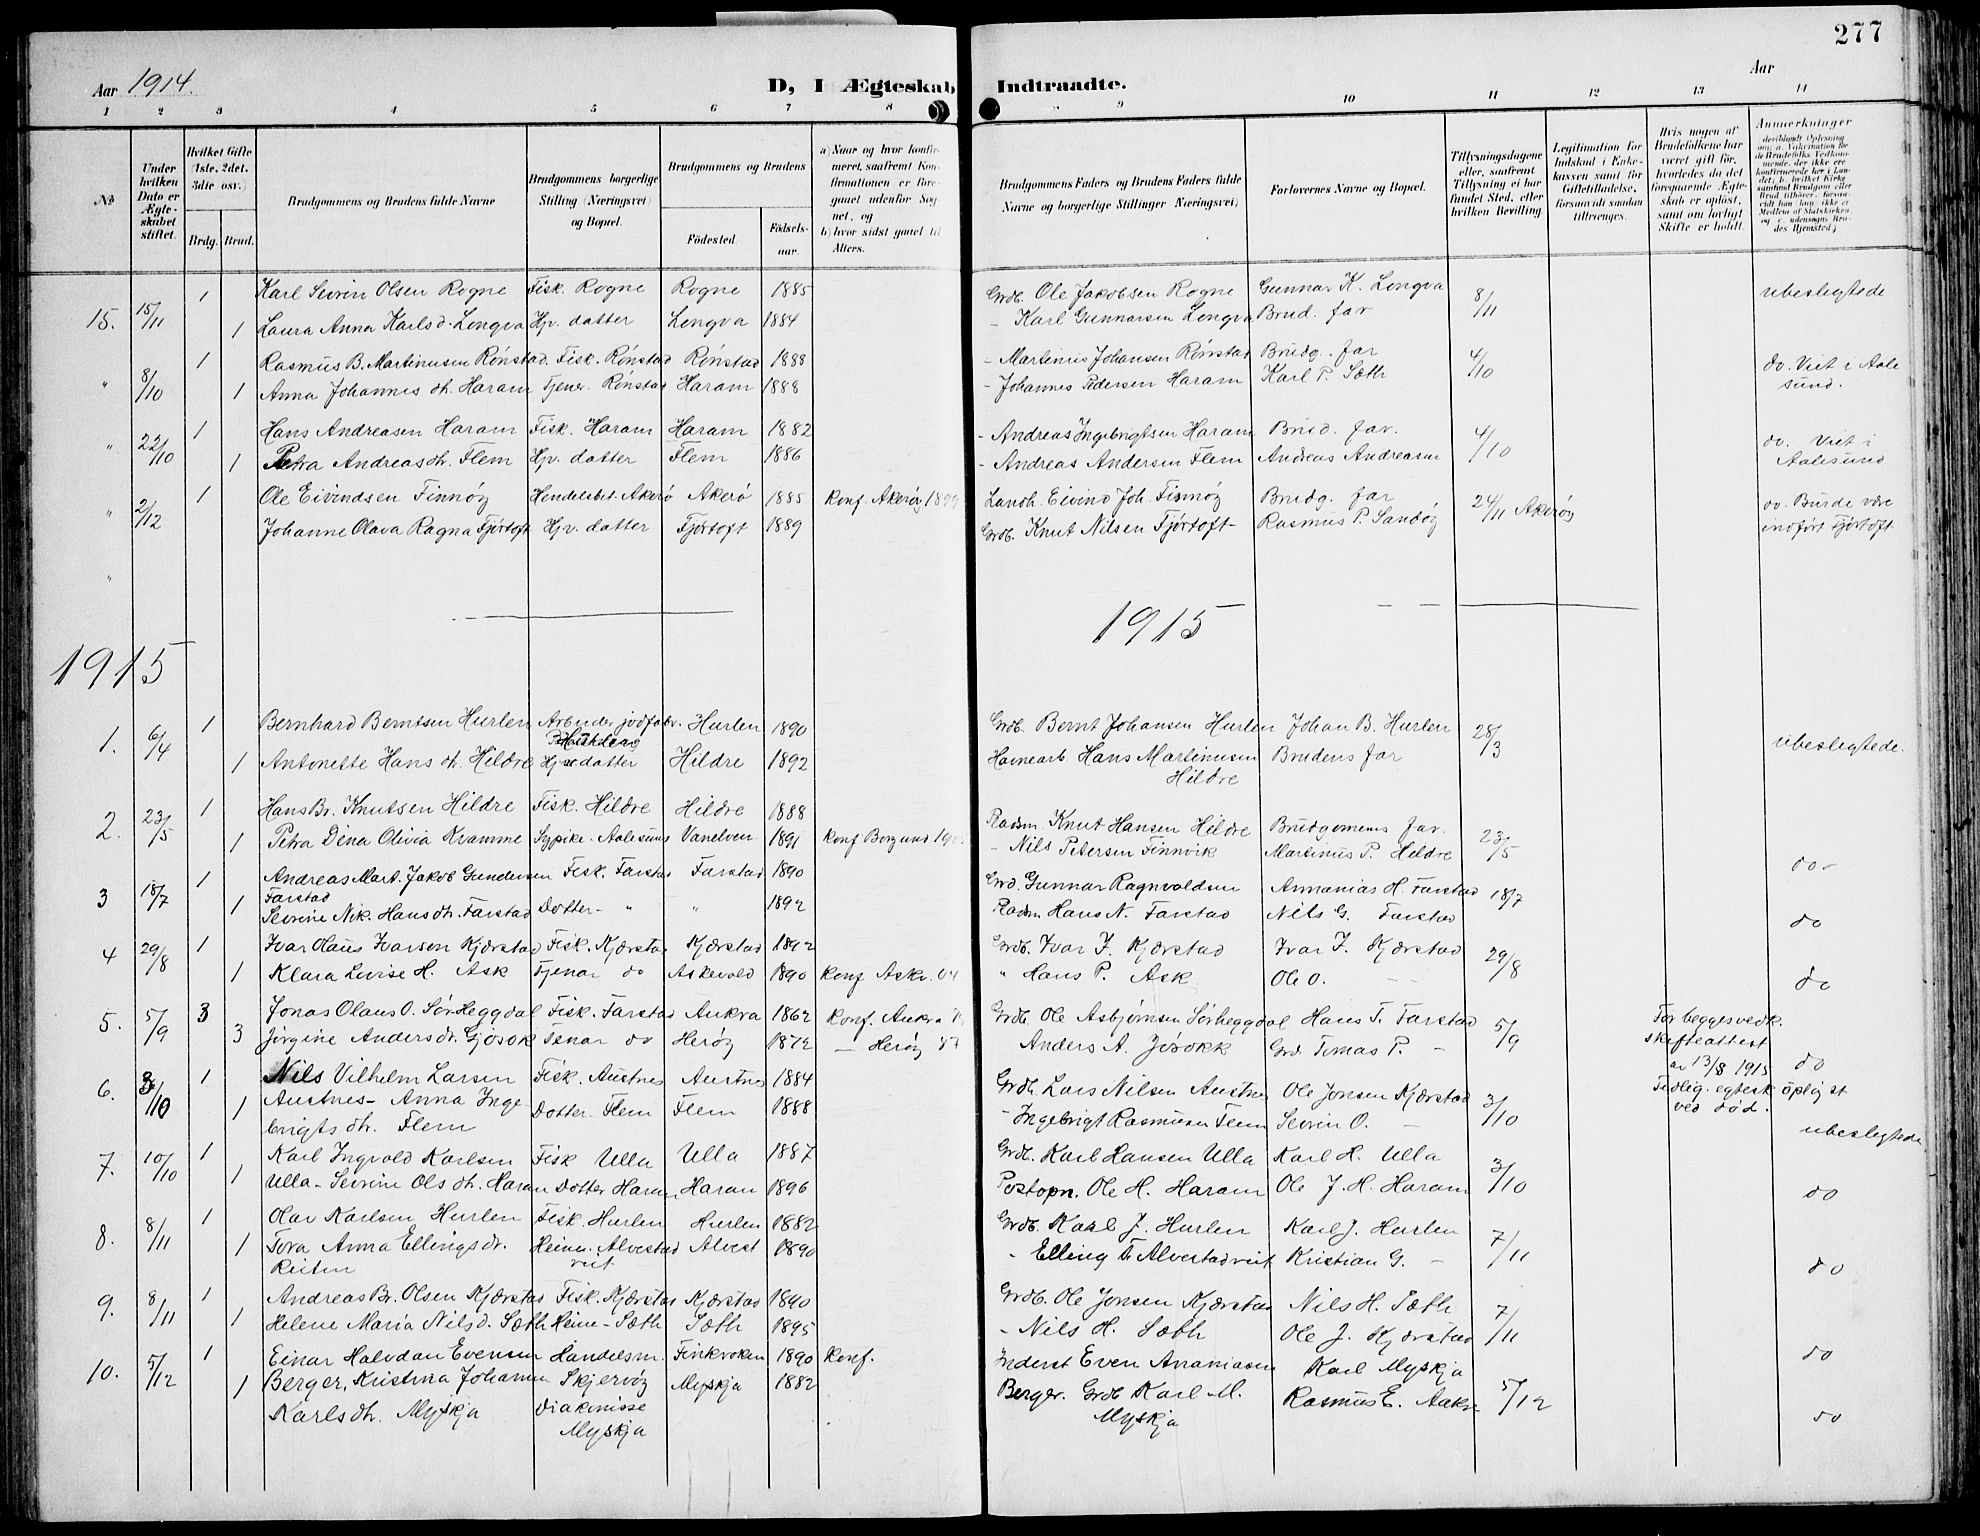 277
Aar 1914.
D, I Ægteskab Indtraadte.
Aar
1 2 3 4 5 6 7 8 9 10 11 12 13 14
No
Under hvilken Dato er Ægteskabet stiftet.
Hvilket Gifte (1ste, 2det, 3die osv.)
Brdg. Brud.
Brudgommens og Brudens fulde Navne
Brudgommens borgerlige Stilling (Næringsvei) og Bopæl.
Brudgommens og Brudens
Födested.
Födselsaar.
a) Naar og hvor konfirmeret, saafremt Konfirmationen er foregaaet udenfor Sognet, og
b) hvor sidst gaaet til Alters.
Brudgommens Faders og Brudens Faders fulde Navne og borgerlige Stillinger (Næringsvei)
Forlovernes Navne og Bopæl.
Tillysningsdagene eller, saafremt Tillysning ei har fundet Sted, efter hvilken Bevilling.
Legitimation for Indskud i Enkekassen samt for Giftetilladelse, forsaavidt saadan tiltrænges.
Hvis nogen af Brudefolkene har været gift för, hvorledes da det foregaaende Ægteskab er oplöst, samt om lovligt Skifte er holdt.
Anmærkninger
15. 15/11 1 Karl Sevrin Olsen Rogne Fisk. Rogne Rogne 1885 Grdb. Ole Jakobsen Rogne Gunnar K. Longva 8/11 ubeslegtede
1 Laura Anna Karlsd. Longva Hjv. datter Longva 1884 - Karl Gunnarsen Longva Brud. far
" 8/10 1 Rasmus B. Martinusen Rønstad. Fisk. Rønstad Rønstad 1888 - Martinus Johansen Rønstad Brudg. far 4/10 do. Viet i Aale
1 Anna Johannes dt. Haram Tjener. Rønstad Haram 1888 - Johannes Pedersen Haram Karl P. Sæth sund.
" 22/10 1 Hans Andreasen Haram Fisk. Haram Haram 1882 - Andreas Ingebrigtsen Haram Brud. far. 4/10 do. Viet i
1 Petra Andreas dt. Flem Hjv. datter Flem 1886 - Andreas Andersen Flem Andreas Andreasen Aalesund
" 2/12 1 Ole Eivindsen Finnøy Hendelsbet. Akerø Akerø 1885 Konf. Akerøy Landh. Eivind Joh. Finnøy Brudg. far 24/11 Akerøy do. Burde være
Johanne Olava Ragna Fjørtoft Hjv. datter Fjørtoft 1889 Grdb. Knut Nilsen Fjørtoft- Rasmus P. Sandøy indført Fjørtoft
"
1915
1915
1. 6/4 1 Bernhard Berntsen Hurlen Arbeider jodfabr. Hurlen 1890 Grdb. Bernt Johansen Hurlen Johan B. Hurlen 28/3 ubeslegtede.
1 Antonette Hans dt. Hildre Hjv datter Hildre 1892 Havnearb. Hans Martinusen Brudens far
Hildre
2. 23/5 1 Hans Br. Knutsen Hildre Fisk. Hildre Hildre 1888 Radsm. Knut Hansen Hildre Brudgomens far. 23/5 do-
1 Petra Dina Olivia Kvamme Sypike. Aalesund Vanelven 1891 Konf Borgund - Nils Petersen Finnvik Martinus P. Hildre
3 18/7 1 Andreas Mart. Jakob Gundersen Fisk. Farstad Farstad 1890 Grd. Gunnar Ragnvaldsen Annanias H. Farstad 18/7 do
Farstad
1 Sevrine Nik. Hans dt. Farstad Dotter- " " 1892 Radsm Hans N. Farstad Nils G. Farstad
4 29/8 1 Ivar Olaus Ivarsen Kjærstad Fisk. Kjærstad Kjærstad 1892 Grdb. Ivar J. Kjærstad Ivar J. Kjærstad 29/8 do
1 Klara Lovise H. Ask Tjenar do Askevold 1890 Konf Askv. 04 " Hans P. Ask Ole O. - -
5. 5/9 3 Jonas Olaus O. Sør Heggdal Fisk. Farstad Aukra 1862 Konf. Aukra Grdb. Ole Asbjørnsen Sørheggdal Hans T. Farstad 5/9 For beggesvedk.
3 Jørgine Anders dt. Gjøsok Tenar do Herøy 1872 - Herøy 87 Anders A. Jøsokk Grd. Tomas P. - skifteattest
av 13/8 1915 do
6. 3/10 1 Nils Vilhelm Larsen Fisk. Austnes Austnes 1884 Grdb. Lars Nilsen Austnes Ole Jonsen Kjærstad 3/10 Tidlig. egtesk. opløist
1 Austnes- Anna Inge Dotter- Flem Flem 1888 - Ingebrigt Rasmusen Flem Sevrin O. - ved død.
brigts dt. Flem ubeslegtede
7. 10/10 1 Karl Ingvald Karlsen Fisk Ulla Ulla 1887 Grdb. Karl Hansen Ulla Karl H. Ulla 3/10
1 Ulla- Sevrine Ols dt. Haram Dotter Haram Haram 1896 Postopn. Ole H. Haram Ole J. H. Haram do
8. 8/11 1 Olav Karlsen Hurlen Fisk. Hurlen Hurlen 1882 Grdb. Karl J. Hurlen Karl J. Hurlen 7/11
1 Tora Anna Ellings dt. Heime. Alvestad Alvest 1890 - Elling T. Alvestadveit Kristian G. - do
Reiten veit
9. 8/11 1 Andreas Br. Olsen Kjærstad Fisk. Kjærstad Kjærstad 1890 Grdb. Ole Jonsen Kjærstad Nils H. Sæth 7/11
1 Helene Maria Nilsd. Sæth Heime- Sæth Sæth 1895 - Nils H. Sæth Ole J. Kjærstad do
10. 5/12 1 Einar Halvdan Evensen Handelsm. Finkroken 1890 Konf. Inderst Even Ananiasen Karl Myskja 5/12
1 Berger, Kristina Johanna Skjervøy Myskja 1882 Berger. Grdb Karl M. Rasmus E. Aakre
Karls dt. Myskja Diakonisse Myskja do
Myskja